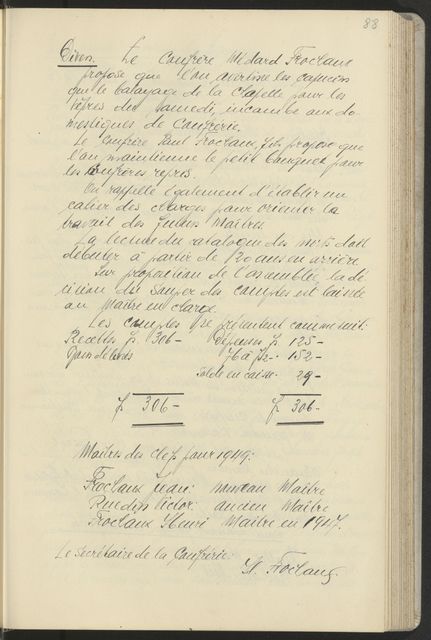 88
Divers. Le Confrère Médard Froclaux
propose que l'on avertisse les capucins
que le balayage de la Chapelle pour les
vêpres du samedi, incombe aux do-
mestiques de Confrérie.
Le Confrère Paul Froclaux, fils propose que
l'on maintienne le petit banquet pour
les Confrères repris.
On rappelle également d'établir un
cahier des charges pour orienter le
travail des futurs Maîtres.
La lecture du catalogue des doit
débuter à partir de 20 ans en arrière.
Sur proposition de l'assemblée, la dé-
cision du souper des comptes est laissée
au Maître en charge.
Les comptes se présentent comme suit:
Recettes fr 306.- Dépenses fr 125.-
152.-
Solde en caisse. 29.-
fr 306.- fr 306.-
Maîtres des clefs pour 1949:
Froclaux Jean: nouveau Maître
Victor: ancien Maître
Froclaux Henri Maître en 1947.
Le Secrétaire de la Confrérie:
Froclaux